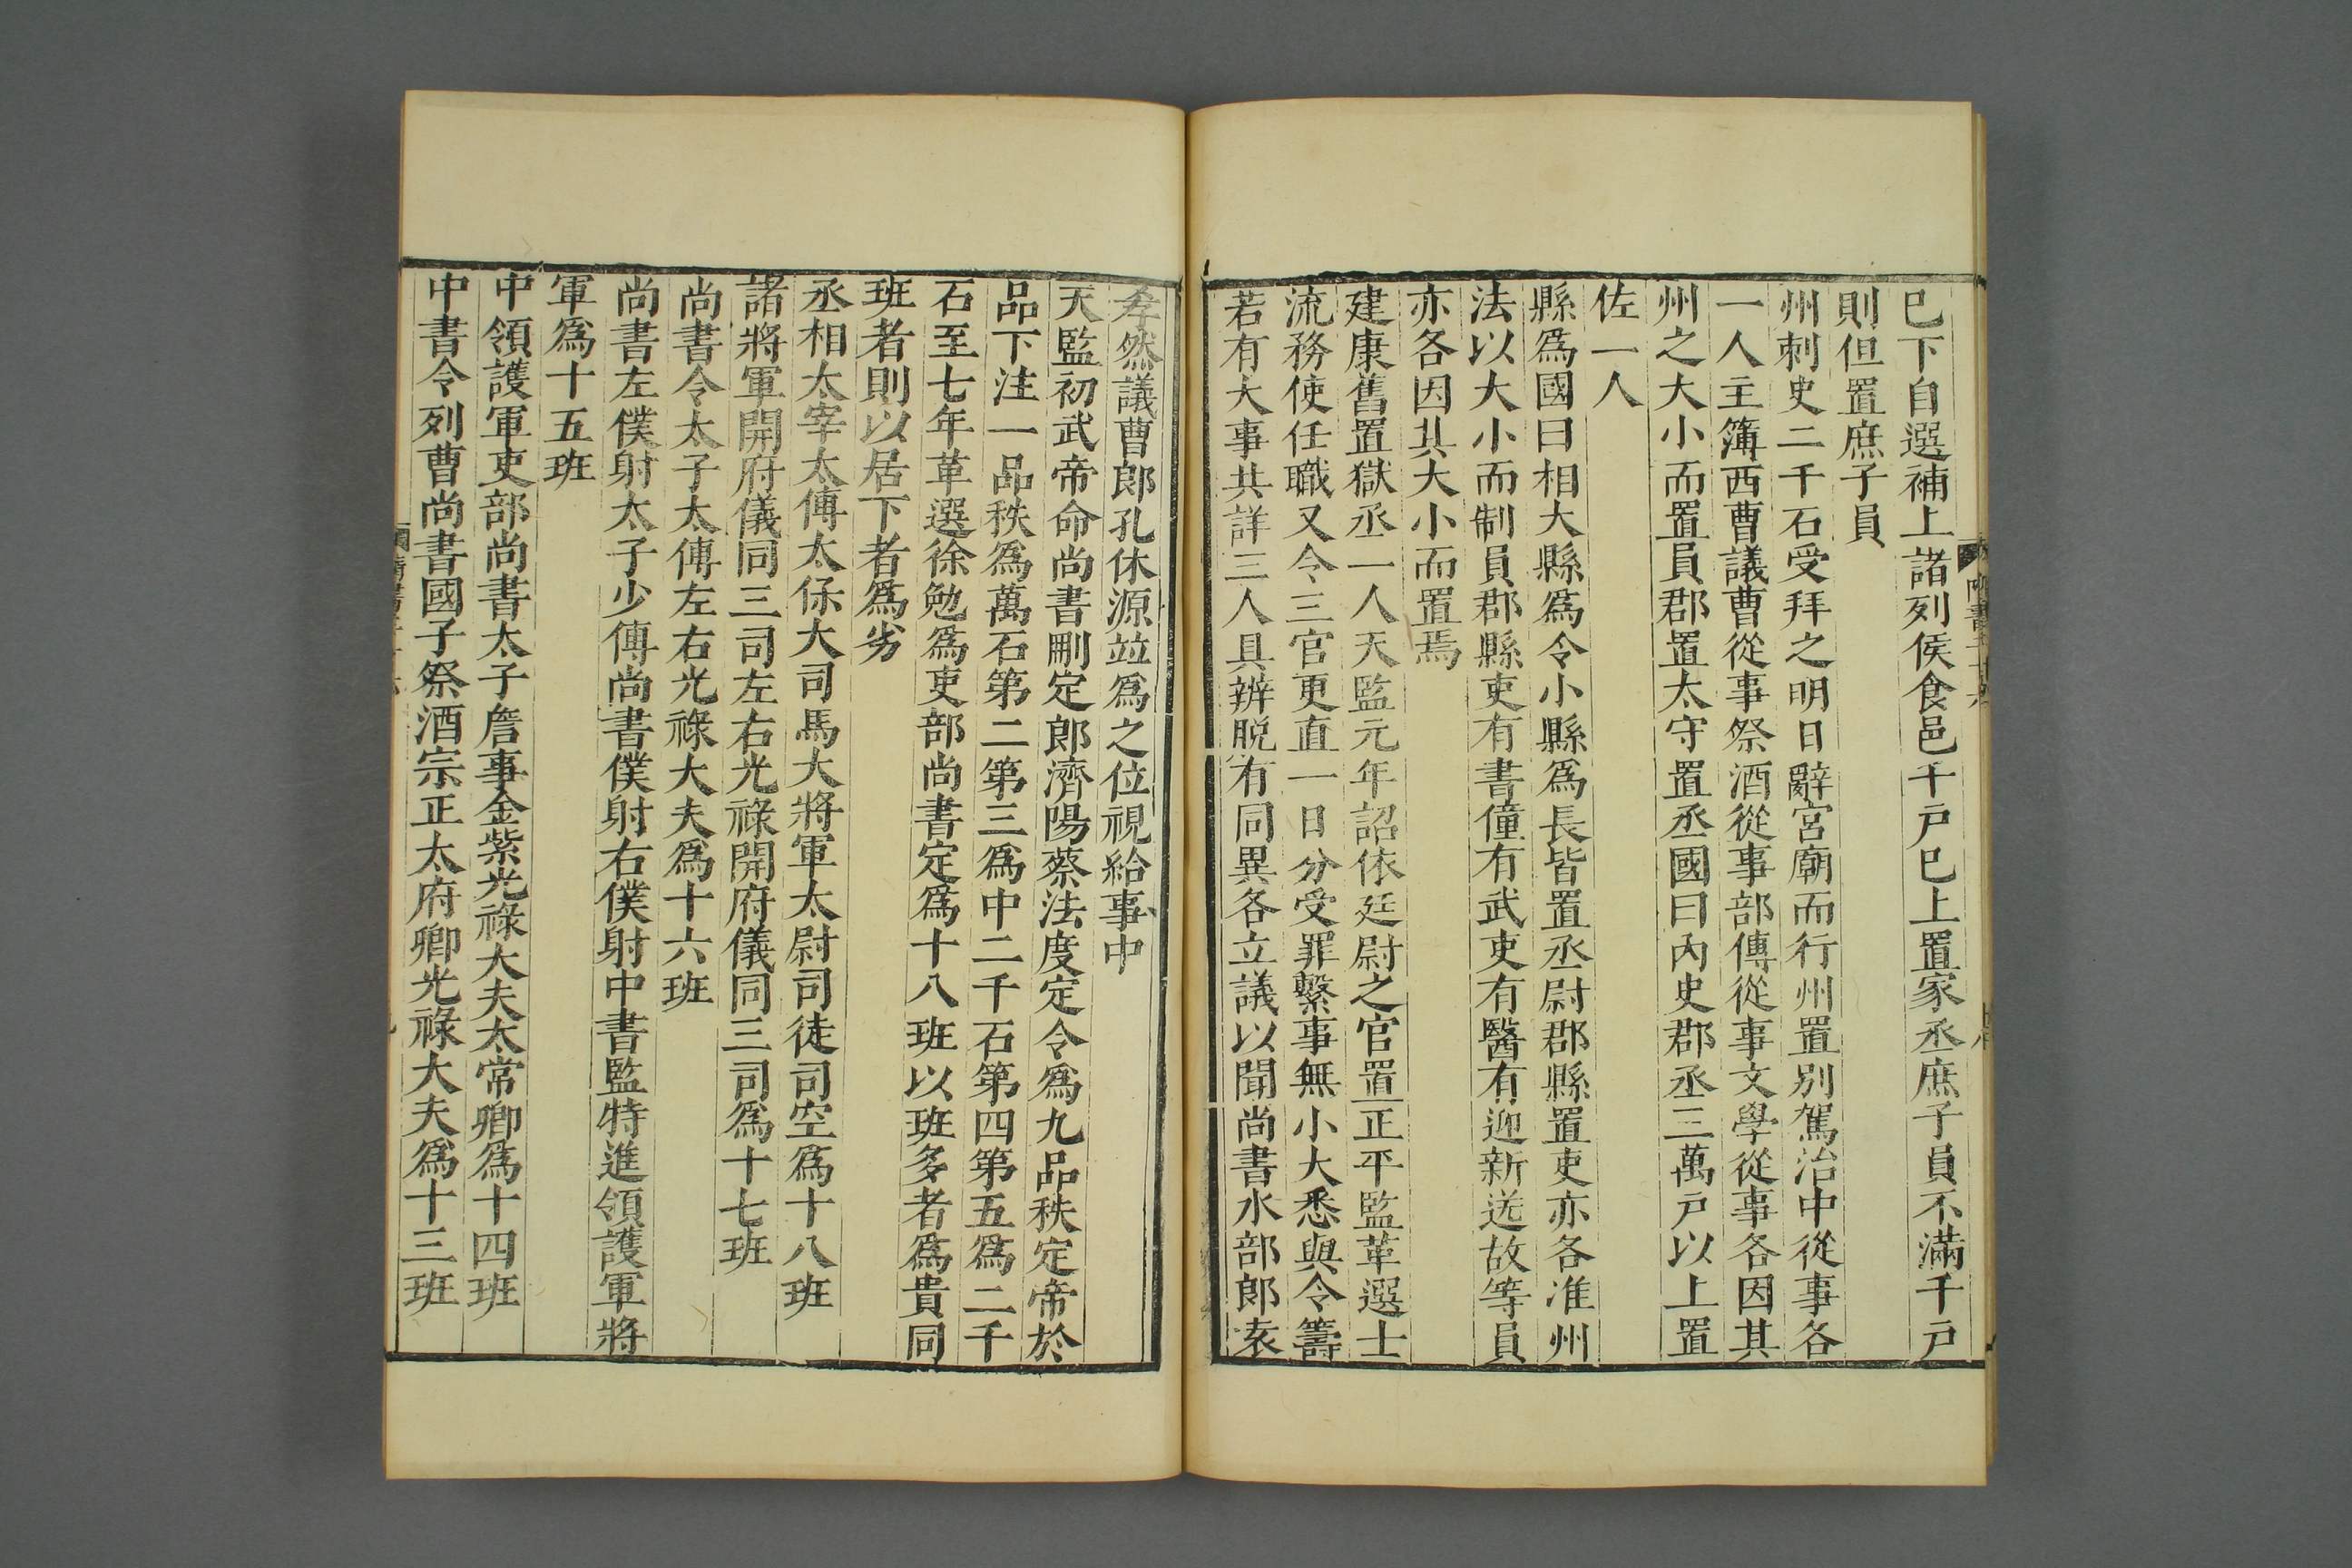 已下自選補上諸列侯食邑千戸已上置家丞庶子員不滿千戸
則但置庶子員
州刺史二千石受拜之明日辭宮廟而行州置別駕治中從事各
一人主簿西曹議曹從事祭酒從事部傳從事文學從事各因其
州之大小而置員郡置太守置丞國曰內史郡丞三萬戸以上置
佐一人
縣爲國曰相大縣爲令小縣爲長皆置丞尉郡縣置吏亦各准州
法以大小而制員郡縣吏有書僮有武吏有醫有迎新送故等員
亦各因其大小而置焉
建康舊置獄丞一人天監元年詔依廷尉之官置正平監革選士
流務使任職又令三官更直一日分受罪繫事無小大悉與令籌
若有大事共詳三人具辨脫有同異各立議以聞尚書水部郎袁
孝然議曹郎孔休源竝爲之位視給事中
天監初武帝命尚書刪定郎濟陽蔡法度定令爲九品秩定帝於
品下注一品秩爲萬石第二第三爲中二千石第四第五爲二千
石至七年革選徐勉爲吏部尚書定爲十八班以班多者爲貴同
班者則以居下者爲劣
丞相太宰太傅太保大司馬大將軍太尉司徒司空爲十八班
諸將軍開府儀同三司左右光祿開府儀同三司爲十七班
尚書令太子太傅左右光祿大夫爲十六班
尚書左僕射太子少傅尚書僕射右僕射中書監特進領護軍將
軍爲十五班
中領護軍吏部尚書太子詹事金紫光祿大夫太常卿爲十四班
中書令列曹尚書國子祭酒宗正太府卿光祿大夫爲十三班